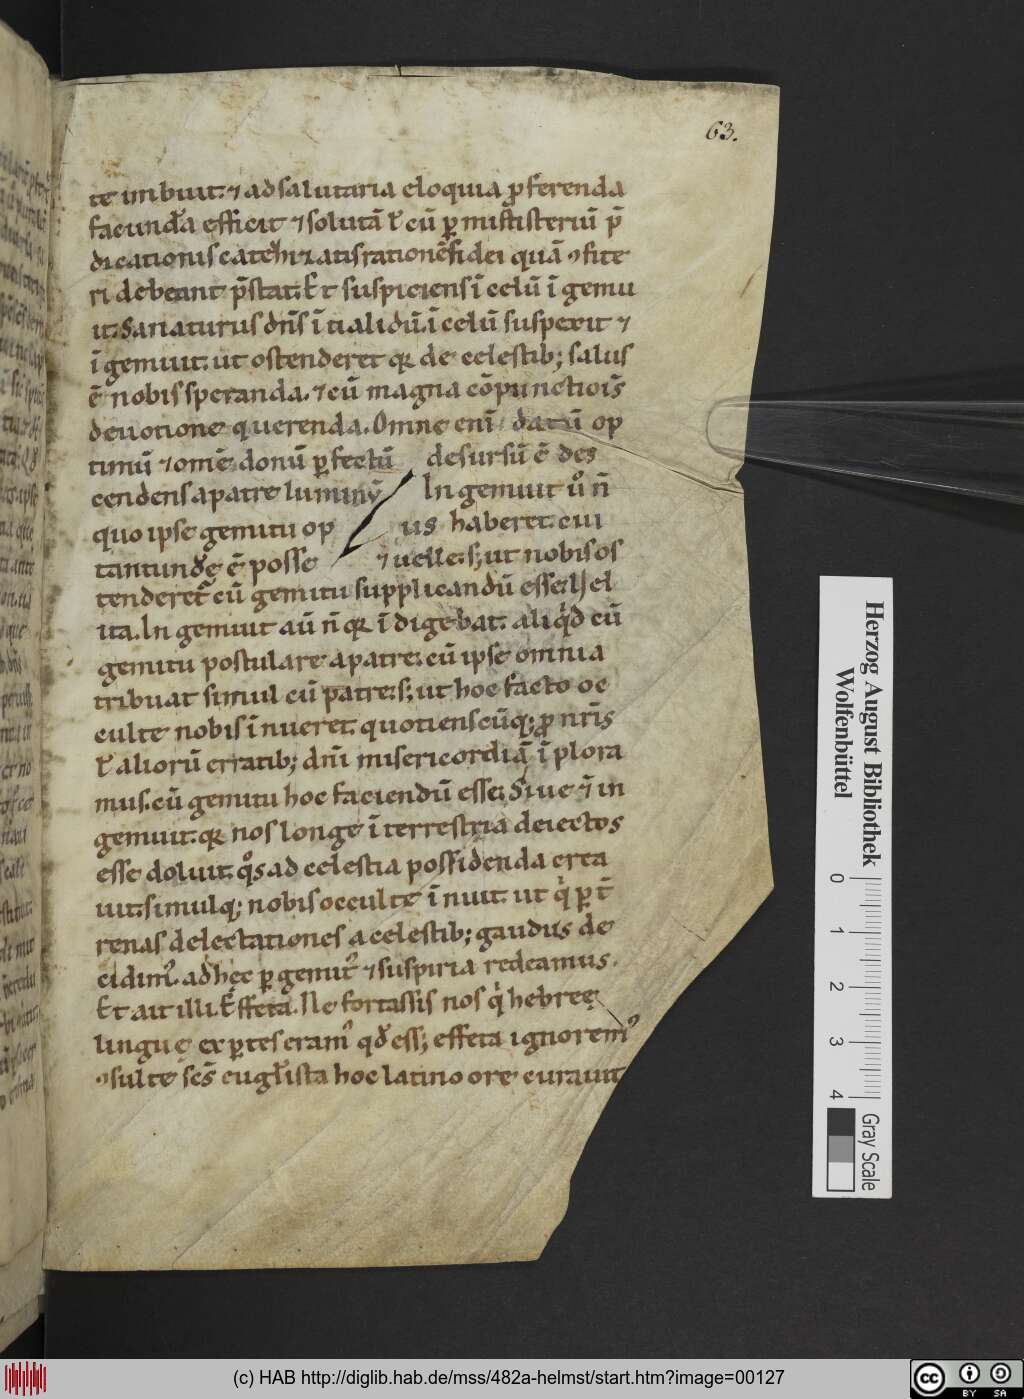 63.
te imbuit. ⁊ ad salutaria eloquia ꝓferenda
facunda efficit ⁊ solutā ł cū ꝑ ministeriū p̄
dicationis catethizatis rationē fidei quā ꝯfite
ri debeant p̄stat. Et suspiciens ī celū ī gemu
it. Sanaturus dn̄s ī
ī celū suspexit ⁊
ī gemuit. ut ostenderet qꝛ de celestib; salus
ē nobis speranda. ⁊ cū magna cōpunctiōis
deuotione querenda. Omne enī datū op
timū ⁊ om̄e donū ꝑfectū desursū ē des
cendens a patre luminū Ingemuit ů n̄
quo ipse gemitu op us haberet. cui
tantundē ē posse ⁊ uelle. s; ut nobis os
tenderet cū gemitu supplicandū esse.
ita. Ingemuit aū n̄ qꝛ īdigebat. aliqͥd cū
gemitu postulare a patre. cū ipse omnia
tribuat simul cū patre. s; ut hoc facto oc
culte nobis īnueret. quotienscūq; ꝓ nr̄is
ł aliorū erratib; dn̄i misericordiā īplora
mus. cū gemitu hoc faciendū esse. Siue ⁊ in
gemuit. qꝛ nos longe ī terrestria deiectos
esse doluit. qͦs ad celestia possidenda crea
uit. simulq; nobis occulte īnuit. ut qͥ ꝑ t̄
renas delectationes a celestib; gaudiis de
cidimꝰ. ad hęc ꝑ gemitꝰ ⁊ suspiria redeamus.
Et ait illi. Effeta. Ne fortassis nos qͥ hebreę
linguę exꝑtes eramꝰ qđ ess; effeta ignoremꝰ
ꝯsulte scs̄ euglista hoc latino ore curauit
Herzog August Bibliothek
Wolfenbüttel
0 1 2 3 4
Gray Scale
(c) HAB http://diglib.hab.de/mss/482a-helmst/start.htm?image=00127
cc BY SA